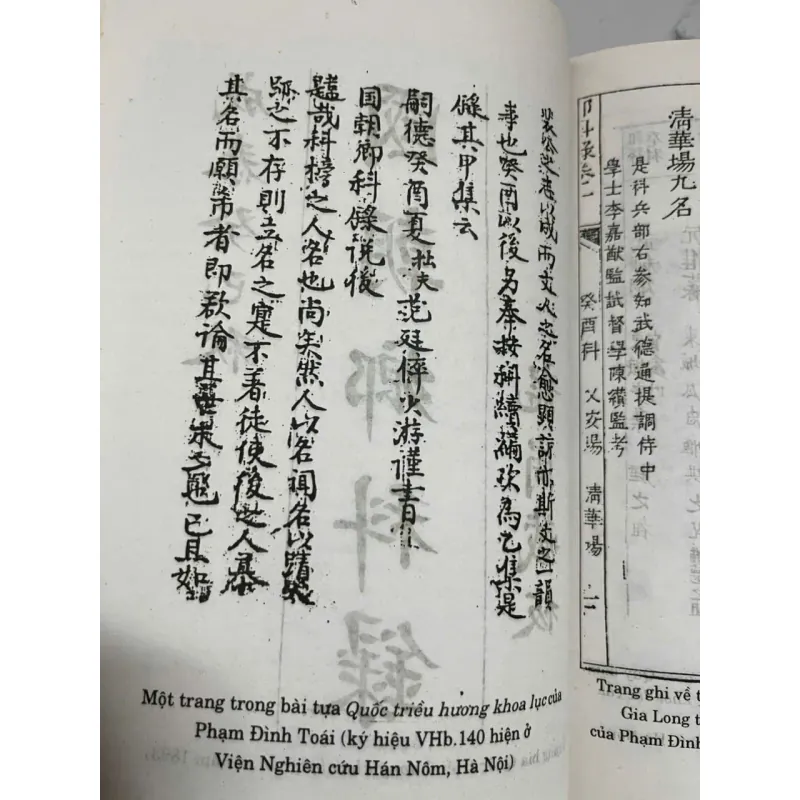 以成而文人之名愈顯 亦斯文之一韻
事也癸酉以後另奉按科續編 為乙集是
錄其甲集云
嗣德癸酉夏拙夫范廷倅少游謹書
国朝鄉科錄説後
韙哉科榜之人名也尚矣然人以名聞名以蹟
跡之不存則立名之寔不着徒使後世人慕
其名而願 者即欲論其世 已且如
Một trang trong bài tựa Quốc triều hương khoa lục của
Phạm Đình Toái (ký hiệu VHb.140 hiện ở
Viện Nghiên cứu Hán Nôm, Hà Nội)
清華場九名
是科兵部右参知武德通提調侍中
學士李嘉猷監試督學陳鑽監考
癸酉科 乂安場 清華場
Trang ghi về
Gia Long
của Phạm Đình